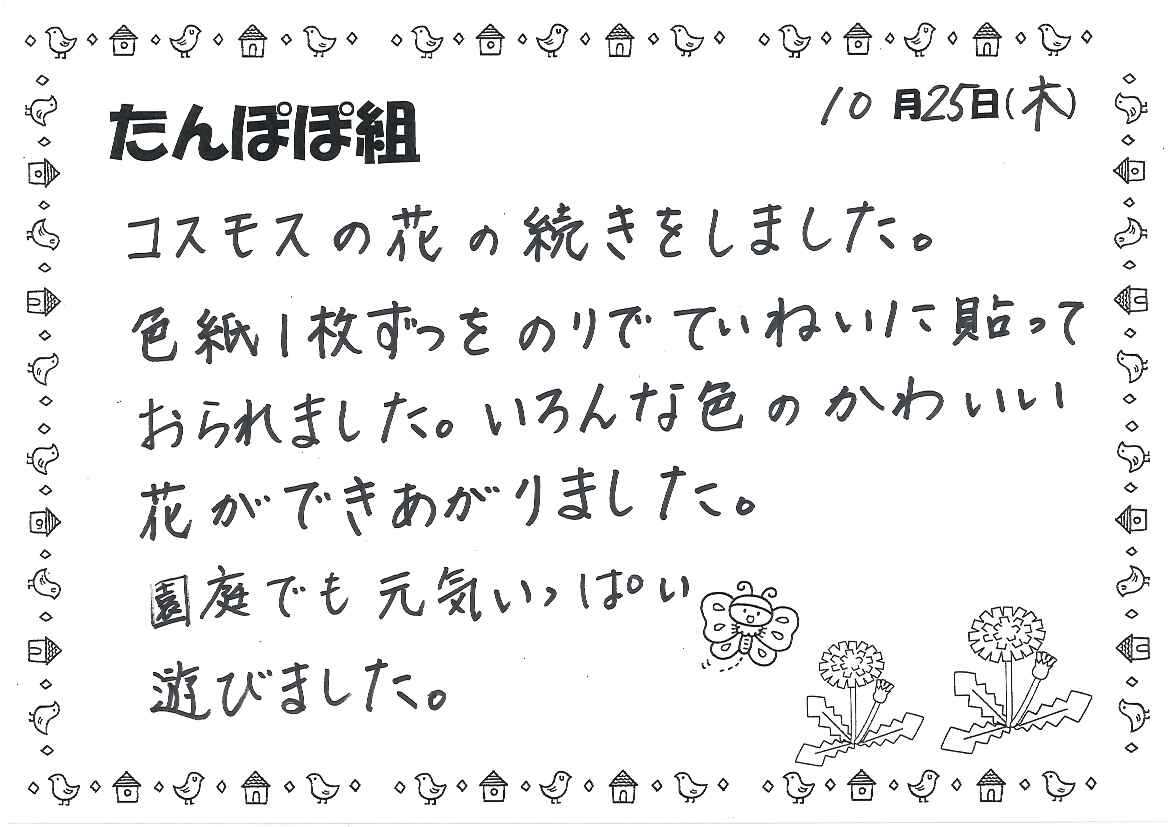 たんぽぽ組
10月25日(木)
コスモスの花の続きをしました。
色紙1枚ずつをのりでていねいに貼って
おられました。いろんな色のかわいい
花ができあがりました。
園庭でも元気いっぱい
遊びました。